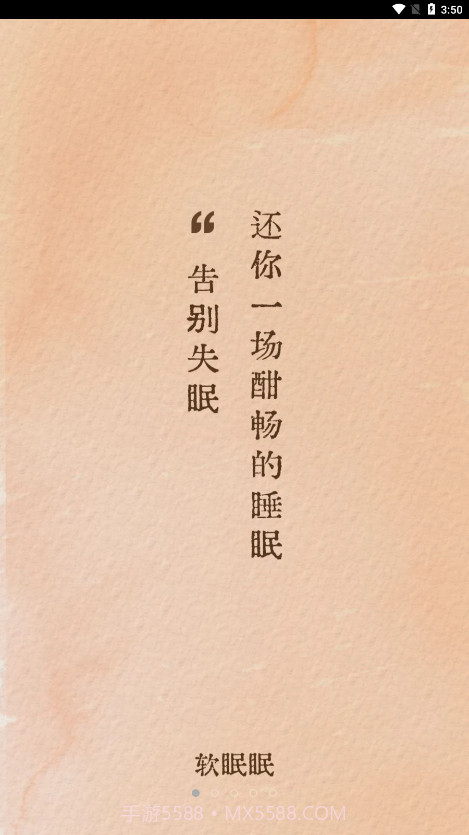 3:50
“告别失眠
还你一场酣畅的睡眠
软眠眠
手游5588·MX5588.COM